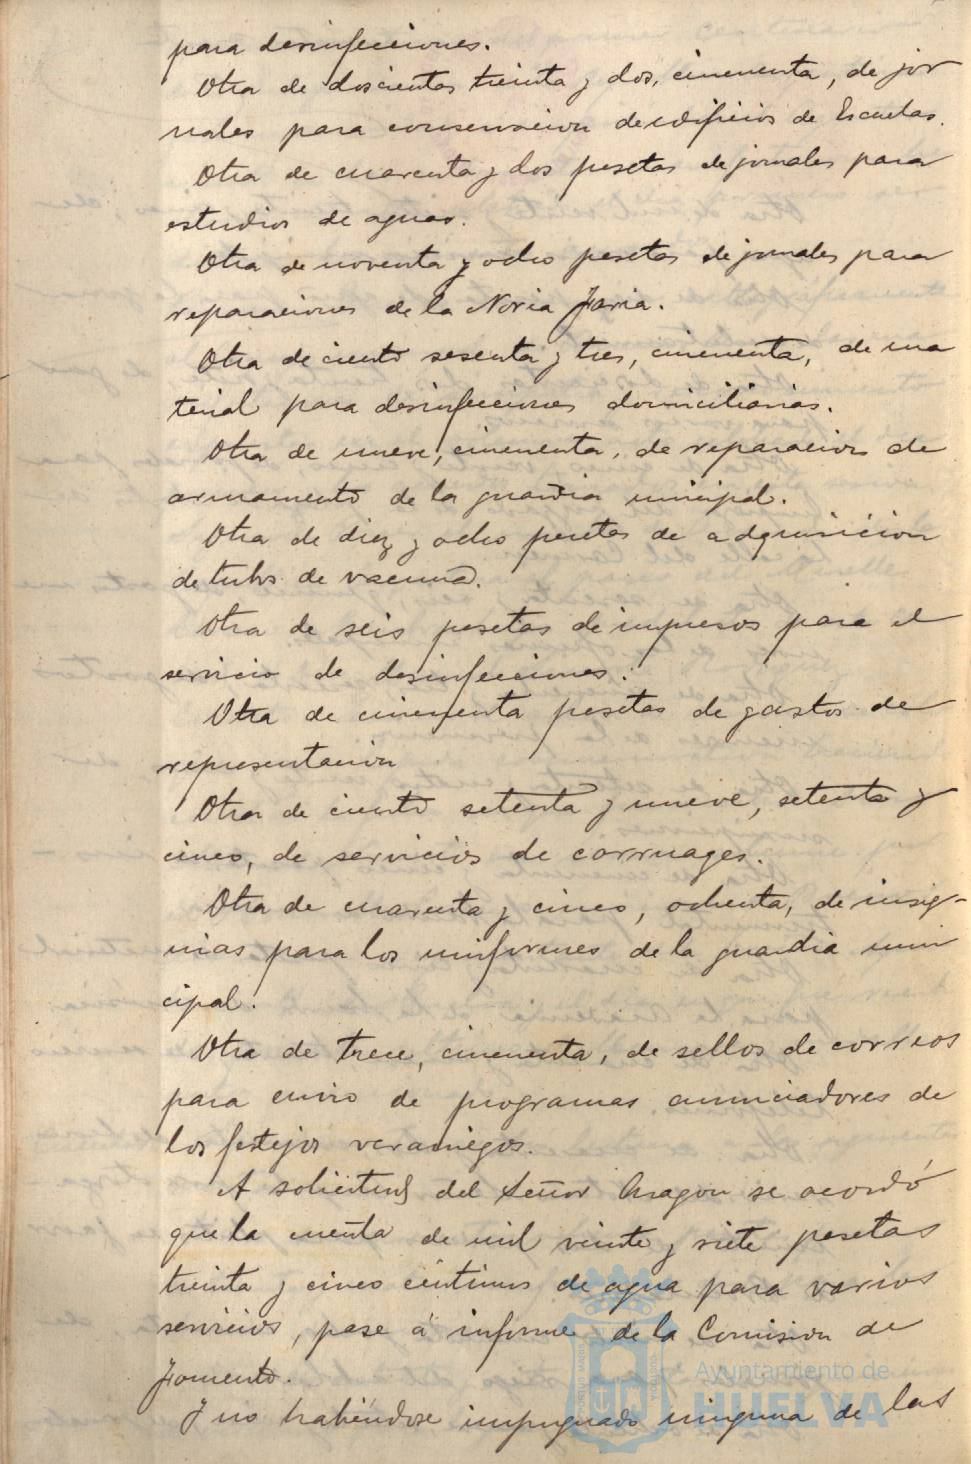 para desinfecciones.
Otra de doscientas treinta y dos, cincuenta, de jor
nales para conservacion de edificios de Escuelas.
Otra de cuarenta y dos pesetas de jornales para
estudios de aguas.
Otra de noventa y ocho pesetas de jornales para
reparaciones de la Noria Faria.
Otra de ciento sesenta y tres, cincuenta, de ma
terial para desinfecciones domiciliarias.
Otra de nueve, cincuenta, de reparacion de
armamento de la guardia municipal.
Otra de diez y ocho pesetas de adquisicion
de tubos de vacuna.
Otra de seis pesetas de impresos para el
servicio de desinfecciones.
Otra de cincuenta pesetas de gastos de
representacion
Otra de ciento setenta y nueve, setenta y
cinco, de servicios de carruages.
Otra de cuarenta y cinco, ochenta, de insig-
nias para los uniformes de la guardia muni
cipal.
Otra de trece, cincuenta, de sellos de correos
para envio de programas anunciadores de
los festejos veraniegos.
A solicitud del Señor Aragon se acordó
que la cuenta de mil veinte y siete pesetas
treinta y cinco centimos de agua para varios
servicios, pase á informe de la Comision de
Fomento.
Y no habiéndose impugnado ninguna de las
Ayuntamiento de
HUELVA